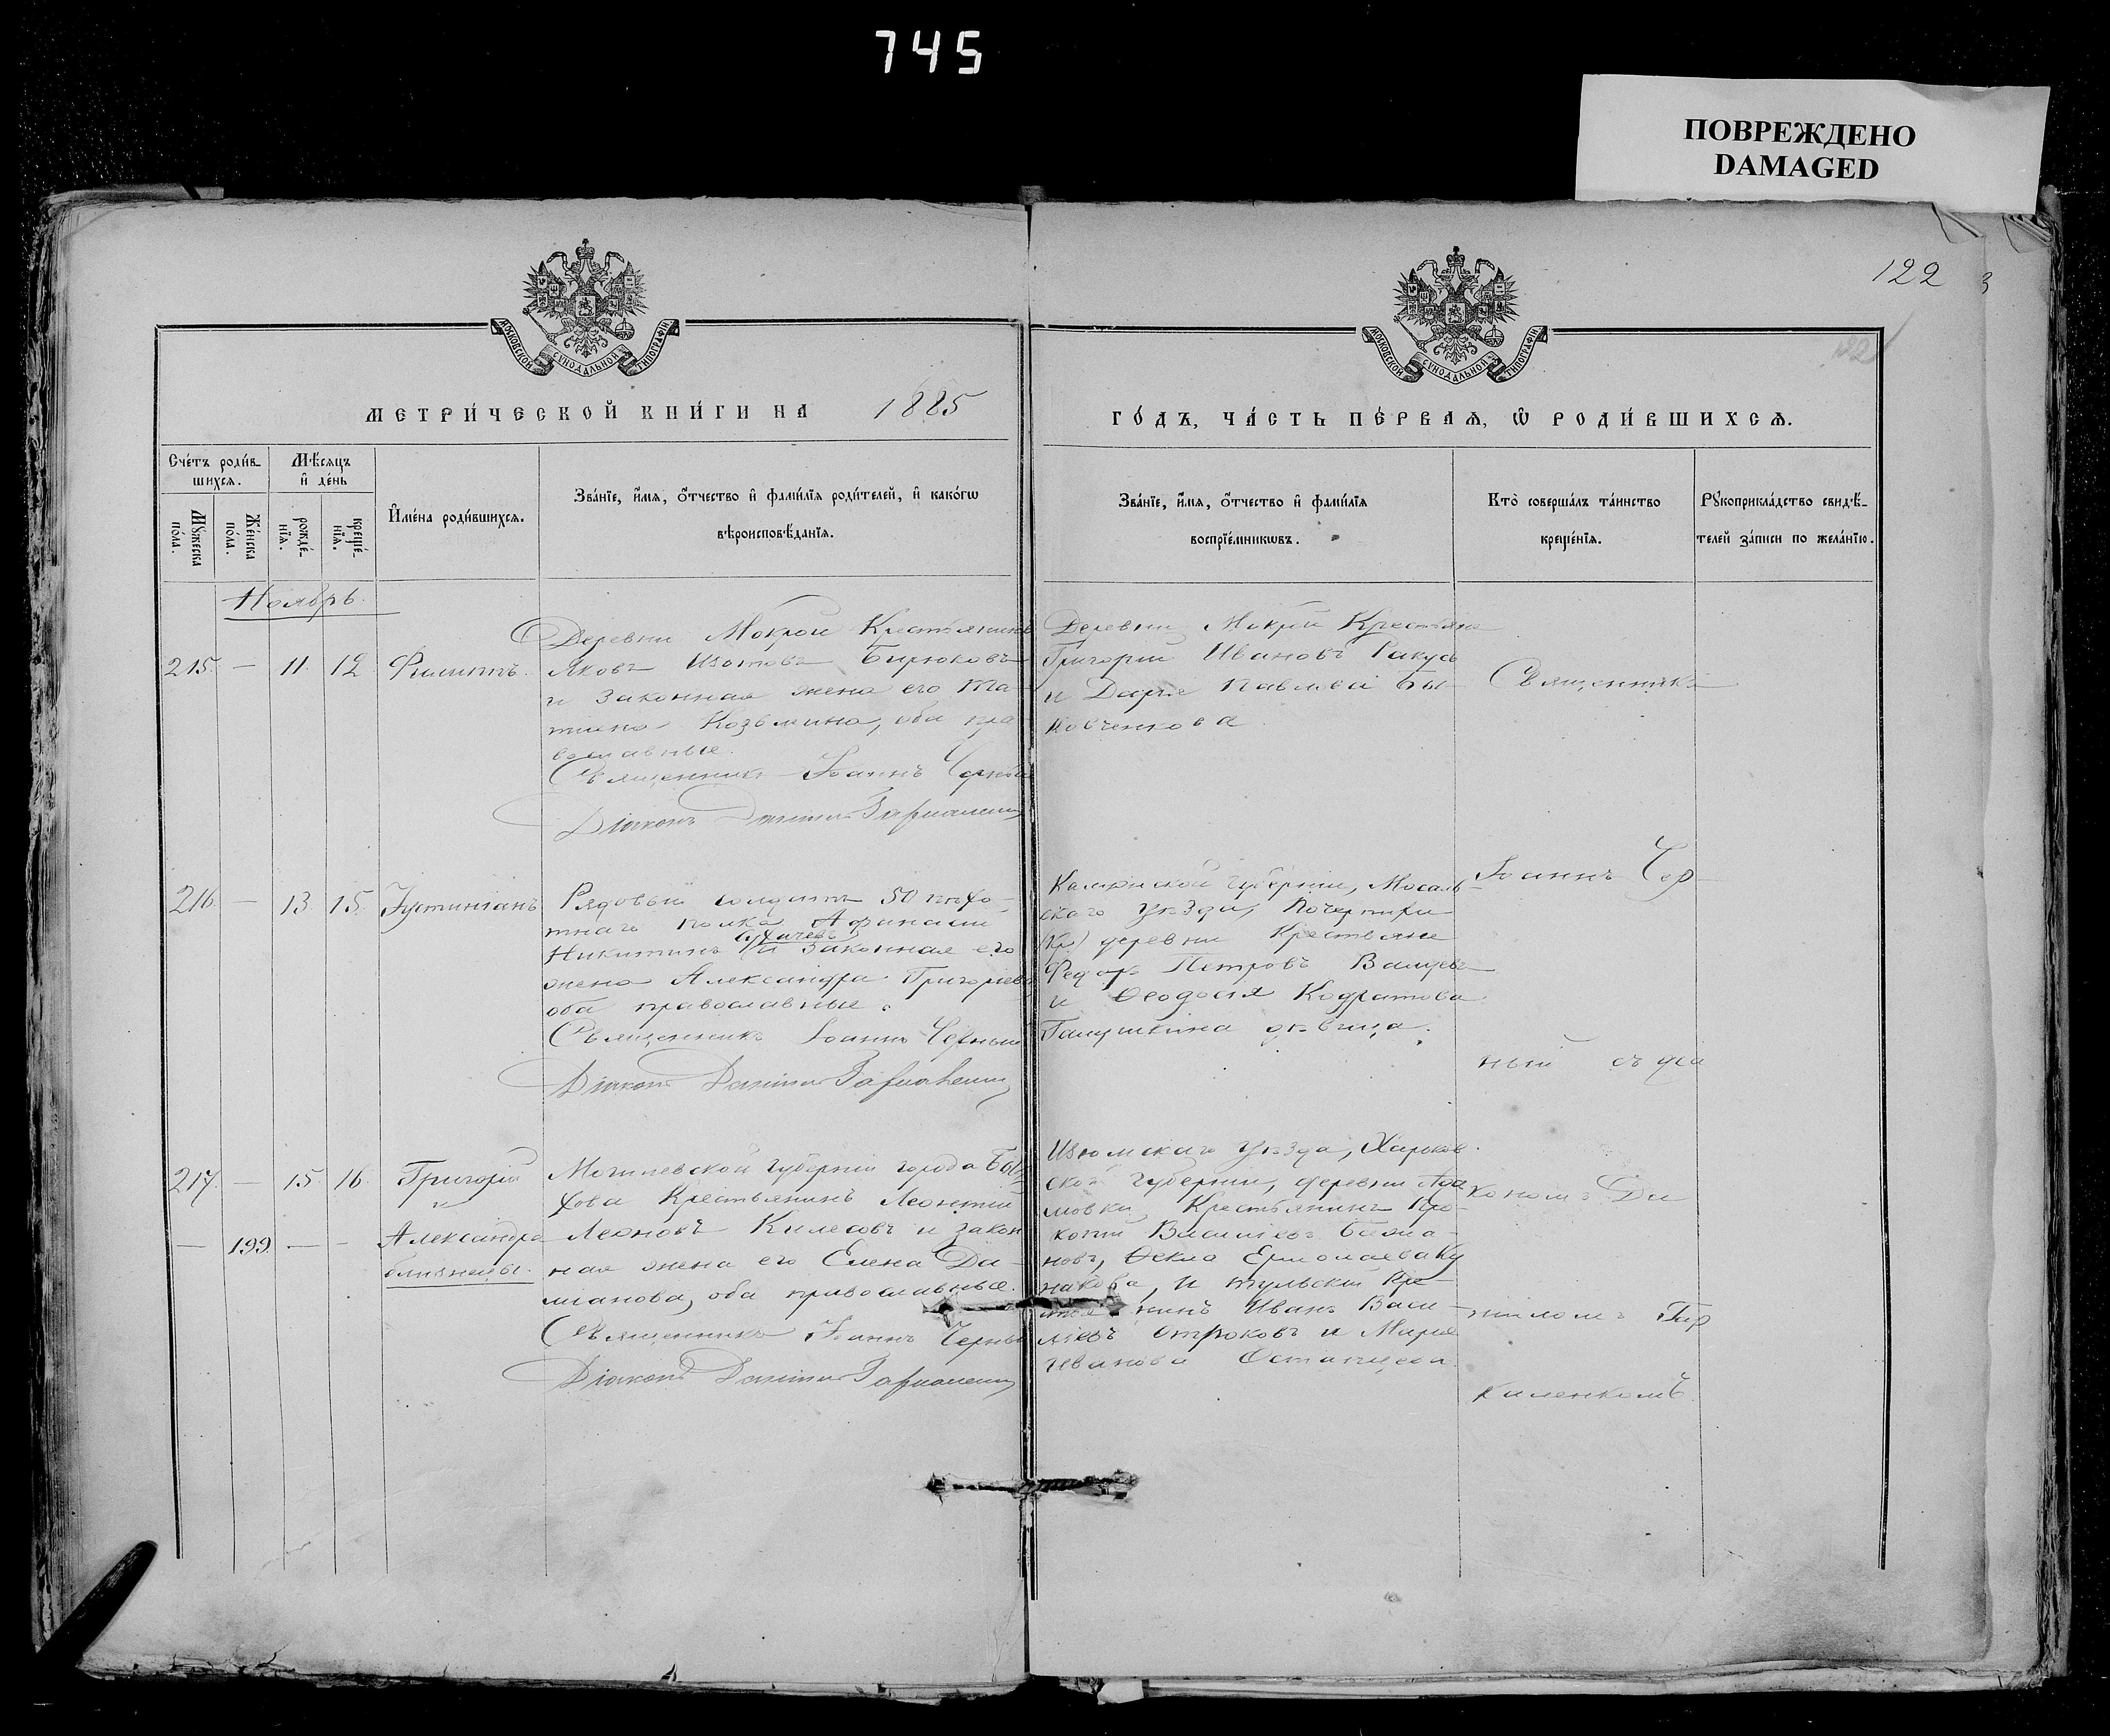 745
ПОВРЕЖДЕНО
DAMAGED
122
3
МОСКОВСКОЙ СУНОДАЛЬНОЙ ТИПОГРАФІИ
МОСКОВСКОЙ СУНОДАЛЬНОЙ ТИПОГРАФІИ
МЕТРИ́ЧЕСКОЙ КНИ́ГИ НА 1885
ГО́ДЪ, ЧА́СТЬ ПЕ́РВАѦ, Ѡ РОДИ́ВШИХСѦ.
Сче́тъ роди́в-
шихсѧ.
Мꙋ́жеска
по́ла.
Же́нска
по́ла.
Мѣ́сѧцъ
и҆ де́нь
рожде́-
нїѧ.
креще́-
нїѧ.
И҆мена̀ роди́вшихсѧ.
Зва́нїе, и҆́мѧ, ѻ҆́тчество и҆ фами́лїѧ роди́телей, и҆ како́гѡ
вѣроисповѣ́данїѧ.
Зва́нїе, и҆́мѧ, ѻ҆́тчество и҆ фами́лїѧ
воспрїе́мникѡвъ.
Кто̀ соверша́лъ та́инство
креще́нїѧ.
Рꙋкоприкла́дство свидѣ́-
телей за́писи по жела́нїю.
Ноябрь.
215. — 11. 12 Филиппъ.
Деревни Мокрой Крестьянинъ
Яковъ Изотовъ Бирюковъ
и законная жена его Та-
тиана Козьмина, оба пра
вославные.
Священникъ Іоаннъ Черный
Діаконъ Даніилъ
Деревни Мокрой Крестьяне
Григорій Ивановъ Ракусъ
и Дарія Павлова Бы-
ковченкова.
Священникъ
216. — 13. 15. Іустиніанъ
Рядовый солдатъ 50 пѣхо-
тнаго полка Афанасій
Никитинъ и законная его
жена Александра Григорьева
оба православные.
Священникъ Іоаннъ Черный
Діаконъ Даніилъ
Калужской губерніи, Мосаль-
скаго уѣзда,
деревни Крестьяне
Федоръ Петровъ
и Ѳеодосія Кодратова
Галушкина дѣвица.
Іоаннъ Чер-
ный съ діа
217. — 15. 16. Григорій
и
— 199. — - Александра
близнецы.
Могилевской губерніи города Бы-
хова Крестьянинъ Леонтій
Леоновъ Килесовъ и закон
ная жена его Елена Да-
міанова, оба православные.
Священникъ Іоаннъ Черный
Діаконъ Даніилъ
Изюмскаго уѣзда, Харьков-
ской губерніи, деревни Ада
мовки, Крестьянинъ Про-
копій Василіевъ Бажа-
новъ, Ѳекла Ермолаева Ку
накова, и тульскій Кре-
нинъ Иванъ Васи-
ліевъ Отроковъ и Марія
Иванова
кономъ Да
ніиломъ Гар
каленкомъ